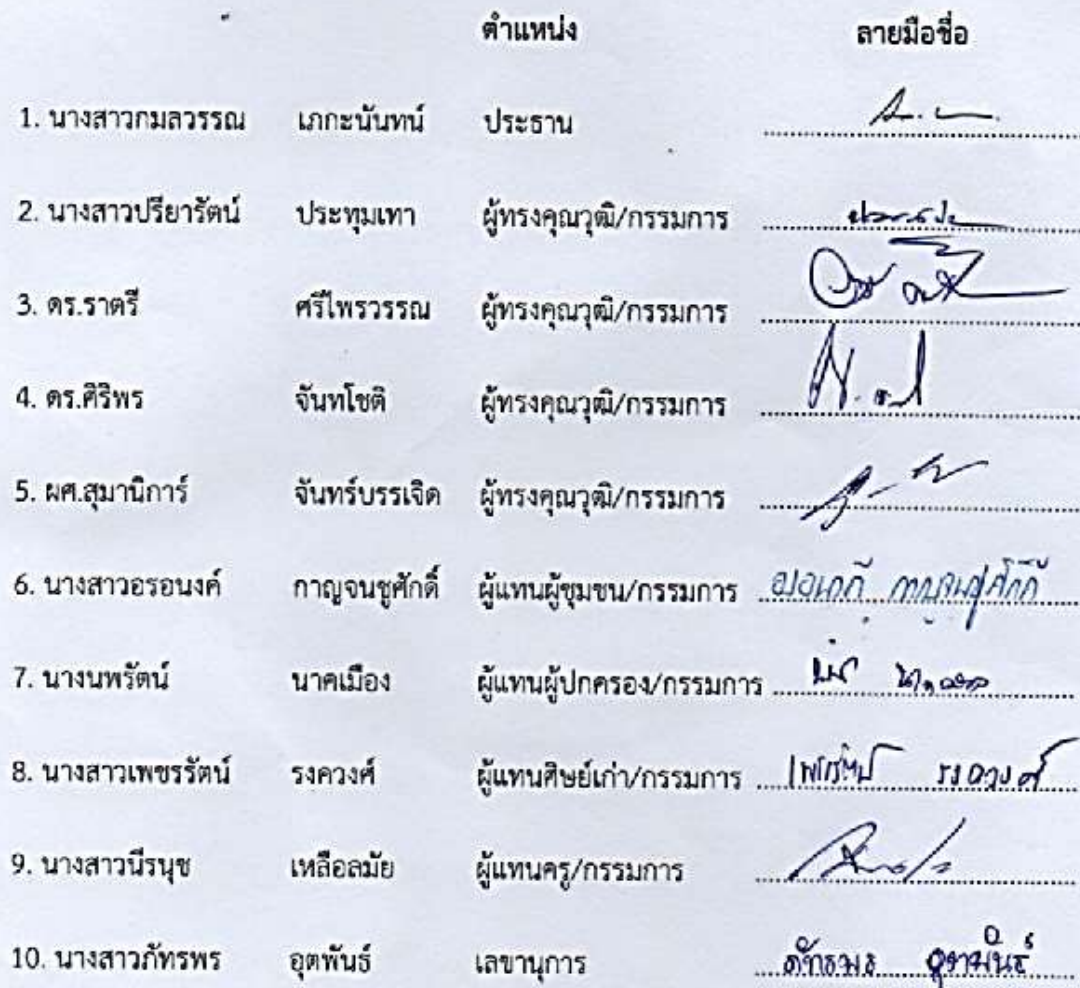 ตำแหน่ง ลายมือชื่อ
1. นางสาวกมลวรรณ เภกะนันทน์ ประธาน
2. นางสาวปรียารัตน์ ประทุมเทา ผู้ทรงคุณวุฒิ/กรรมการ
3. ดร.ราตรี ศรีไพรวรรณ ผู้ทรงคุณวุฒิ/กรรมการ
4. ดร.ศิริพร จันทโชติ ผู้ทรงคุณวุฒิ/กรรมการ
5. ผศ.สุมานิการ์ จันทร์บรรเจิด ผู้ทรงคุณวุฒิ/กรรมการ
6. นางสาวอรอนงค์ กาญจนชูศักดิ์ ผู้แทนผู้ชุมชน/กรรมการ กาญจนชูศักดิ์
7. นางนพรัตน์ นาคเมือง ผู้แทนผู้ปกครอง/กรรมการ
8. นางสาวเพชรรัตน์ รงควงศ์ ผู้แทนศิษย์เก่า/กรรมการ รงควงศ์
9. นางสาวนีรนุช เหลือลมัย ผู้แทนครู/กรรมการ
10. นางสาวภัทรพร อุตพันธ์ เลขานุการ ภัทรพร